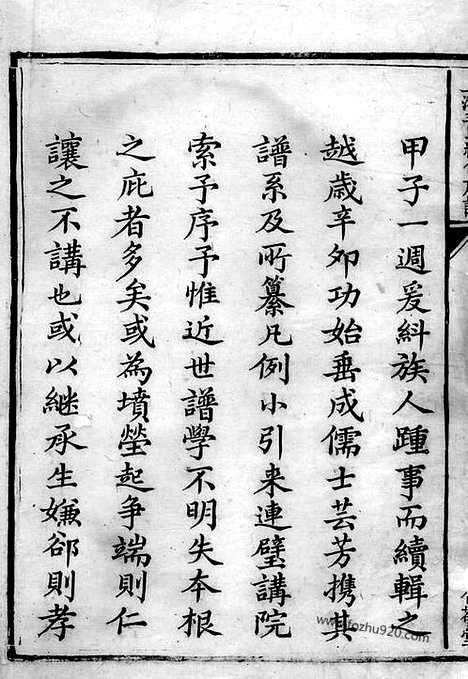 甲子一週爰糾族人踵事而續輯之
越歲辛夘功始垂成儒士芸芳携其
譜系及所纂凡例小引来連璧講院
索予序予惟近世譜學不明失本根
之庇者多矣或為墳塋起争端則仁
讓之不講也或以継承生嫌郤則孝
www.fozhu920.com